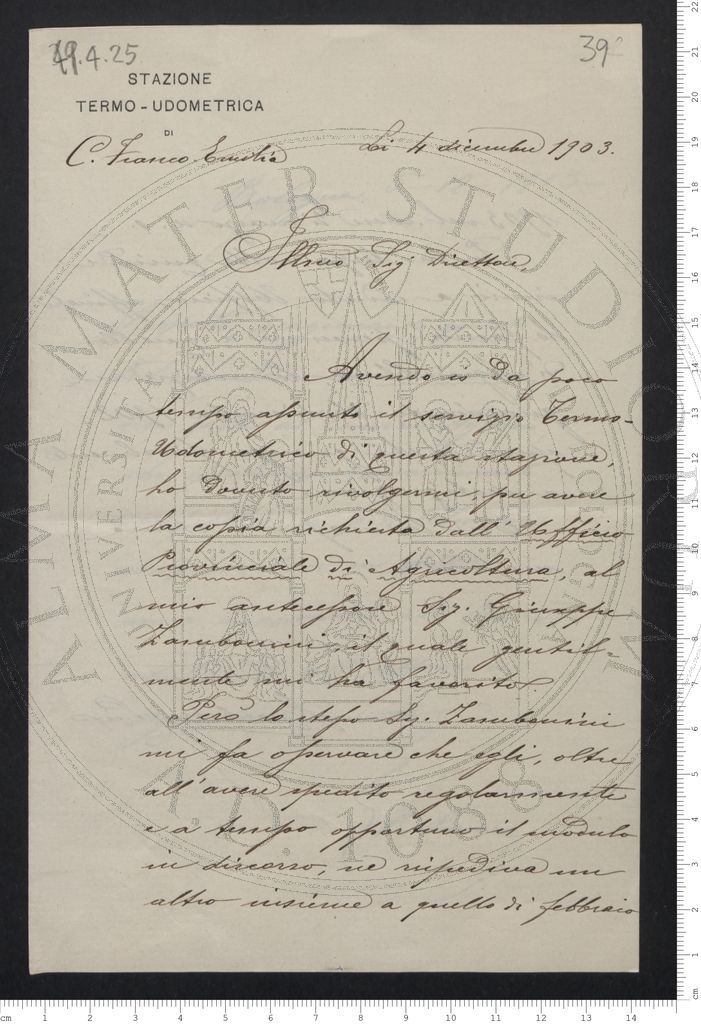 49.4.25
39
STAZIONE
TERMO-UDOMETRICA
DI
C. Franco Emilia
Li 4 dicembre 1903.
Illmo Sig Direttore,
Avendo io da poco
tempo assunto il servizio Termo-
Udometrico di questa stazione,
ho dovuto rivolgermi, per avere
la copia richiesta dall'Ufficio
Provinciale di Agricoltura, al
mio antecessore Sig. Giuseppe
Zambonini, il quale gentil-
mente mi ha favorito.
Però lo stesso Sig. Zambonini
mi fa osservare che egli, oltre
all'avere spedito regolarmente
e a tempo opportuno il modulo
in discorso, ne rispediva un
altro insieme a quello di febbraio
ALMA MATER STUDIORUM
UNIVERSITA
BOLOGNA
A.D. 1088